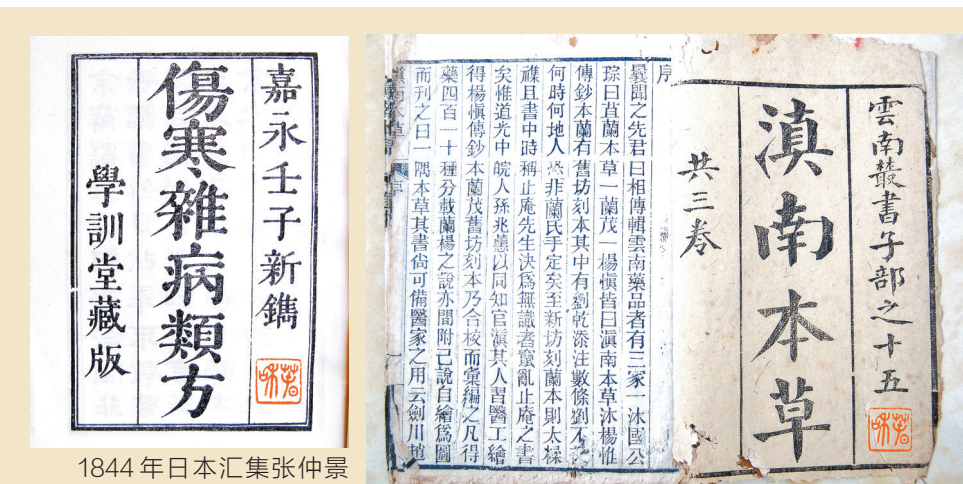 嘉永壬子新鐫
傷寒雜病類方
學訓堂藏版
1844年日本汇集张仲景
雲南叢書子部之十五
滇南本草
共三卷
序
曩聞之先君曰相傳輯雲南藥品者有三家一沐國公
琮曰苴蘭本草一蘭茂一楊慎皆曰滇南本草沐楊惟
傳鈔本蘭有舊坊刻本其中有劉乾添注數條劉不
何時何地人恐非蘭氏手定矣至新坊刻蘭本則太糅
襍且書中時稱止庵先生決爲無識者竄亂止庵之書
矣惟道光中皖人孫兆蕙以同知官滇其人習醫工繪
得楊慎傳鈔本蘭茂舊坊刻本乃合校而彙編之凡得
藥四百一十種分載蘭楊之說亦間附己說自繪爲圖
而刊之曰一隅本草其書尚可備醫家之用云劍川趙